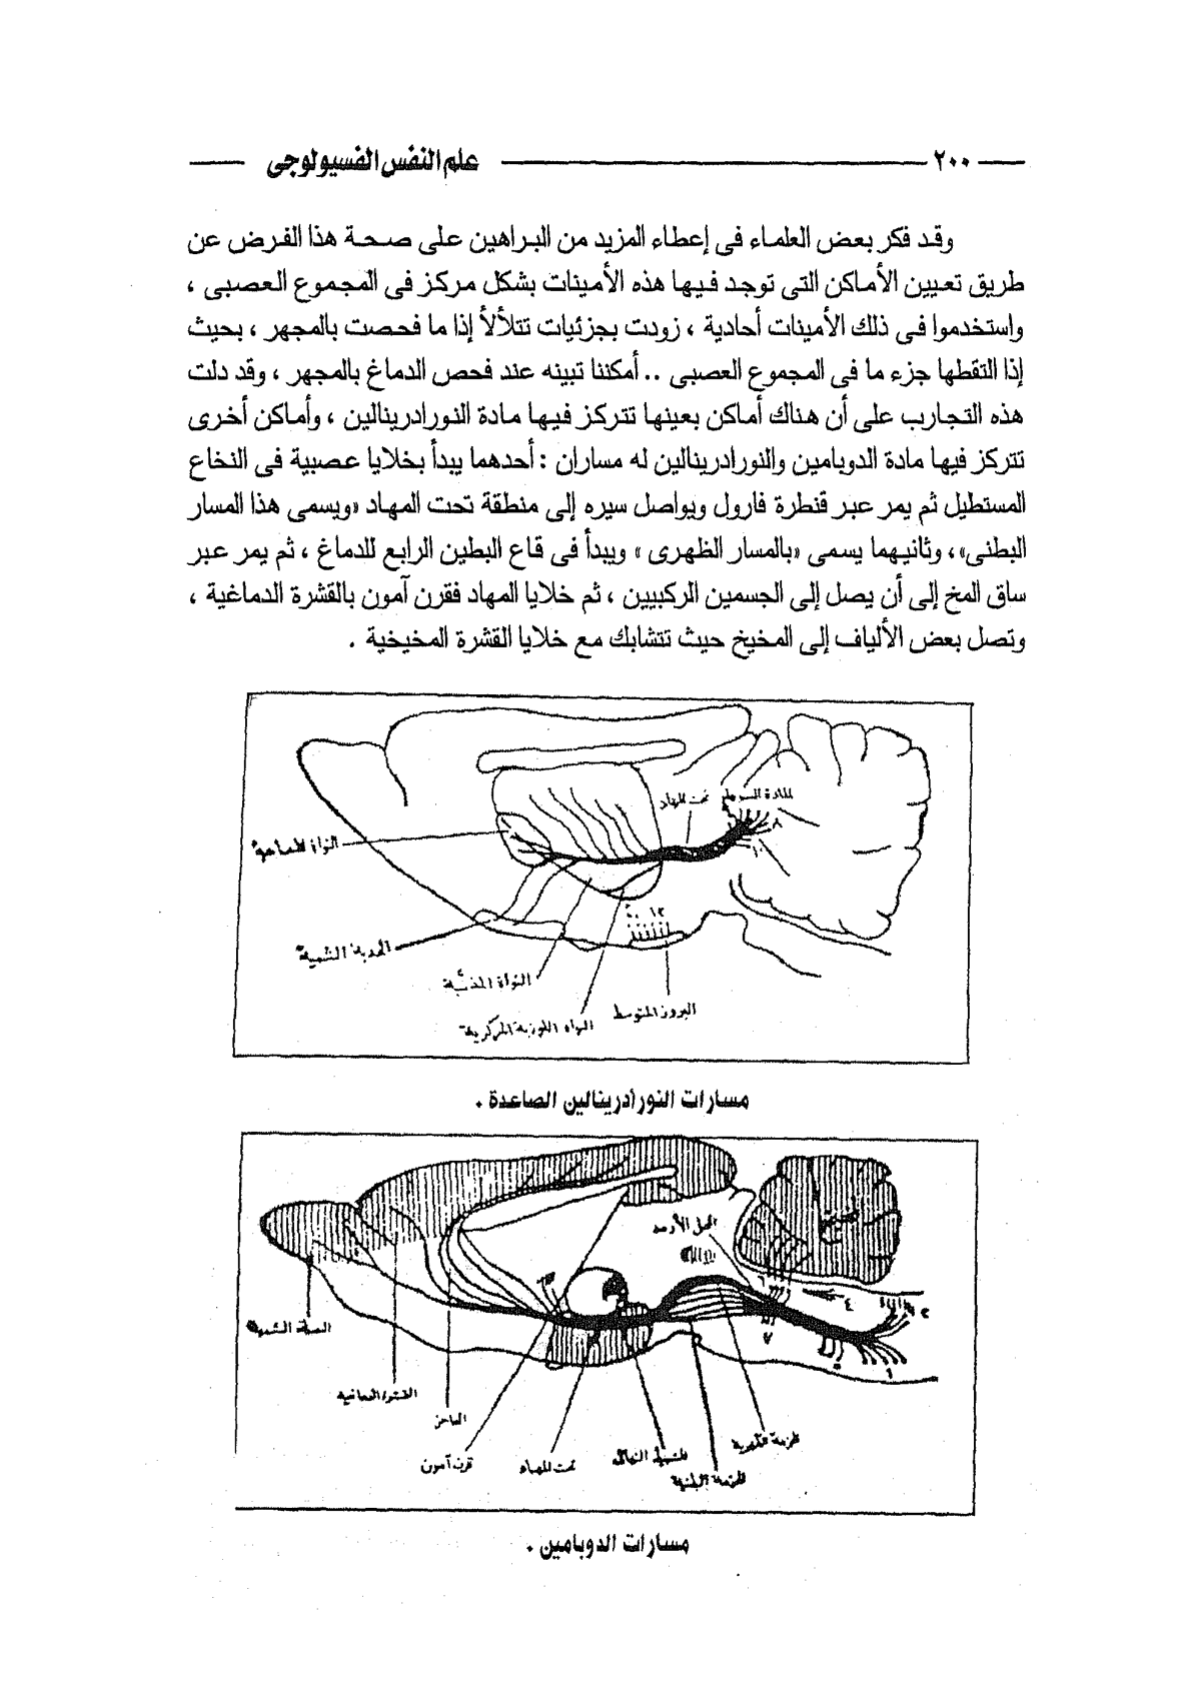 ٢٠٠ علم النفس الفسيولوجى
وقد فكر بعض العلماء فى إعطاء المزيد من البراهين على صحة هذا الفرض عن
طريق تعيين الأماكن التى توجد فيها هذه الأمينات بشكل مركز فى المجموع العصبى ،
واستخدموا فى ذلك الأمينات أحادية ، زودت بجزئيات تتلألأ إذا ما فحصت بالمجهر ، بحيث
إذا التقطها جزء ما فى المجموع العصبى .. أمكننا تبينه عند فحص الدماغ بالمجهر ، وقد دلت
هذه التجارب على أن هناك أماكن بعينها تتركز فيها مادة النورادرينالين ، وأماكن أخرى
تتركز فيها مادة الدوبامين والنورادرينالين له مساران : أحدهما يبدأ بخلايا عصبية فى النخاع
المستطيل ثم يمر عبر قنطرة فارول ويواصل سيره إلى منطقة تحت المهاد «ويسمى هذا المسار
البطنى» ، وثانيهما يسمى «بالمسار الظهرى » ويبدأ فى قاع البطين الرابع للدماغ ، ثم يمر عبر
ساق المخ إلى أن يصل إلى الجسمين الركبيين ، ثم خلايا المهاد فقرن آمون بالقشرة الدماغية ،
وتصل بعض الألياف إلى المخيخ حيث تتشابك مع خلايا القشرة المخيخية .
تحت المهاد
٨
١٠
١٢
الحدبة الشمية
النواة المذنبة
البروز المتوسط
النواه اللوزية المركزية
مسارات النورأدرينالين الصاعدة .
٦
٤
٢
٧
٥
١
القشرة الدماغية
الحاجز
قرن آمون
تحت المهاد
الحزمة الظهرية
الحزمة البطنية
مسارات الدوبامين .